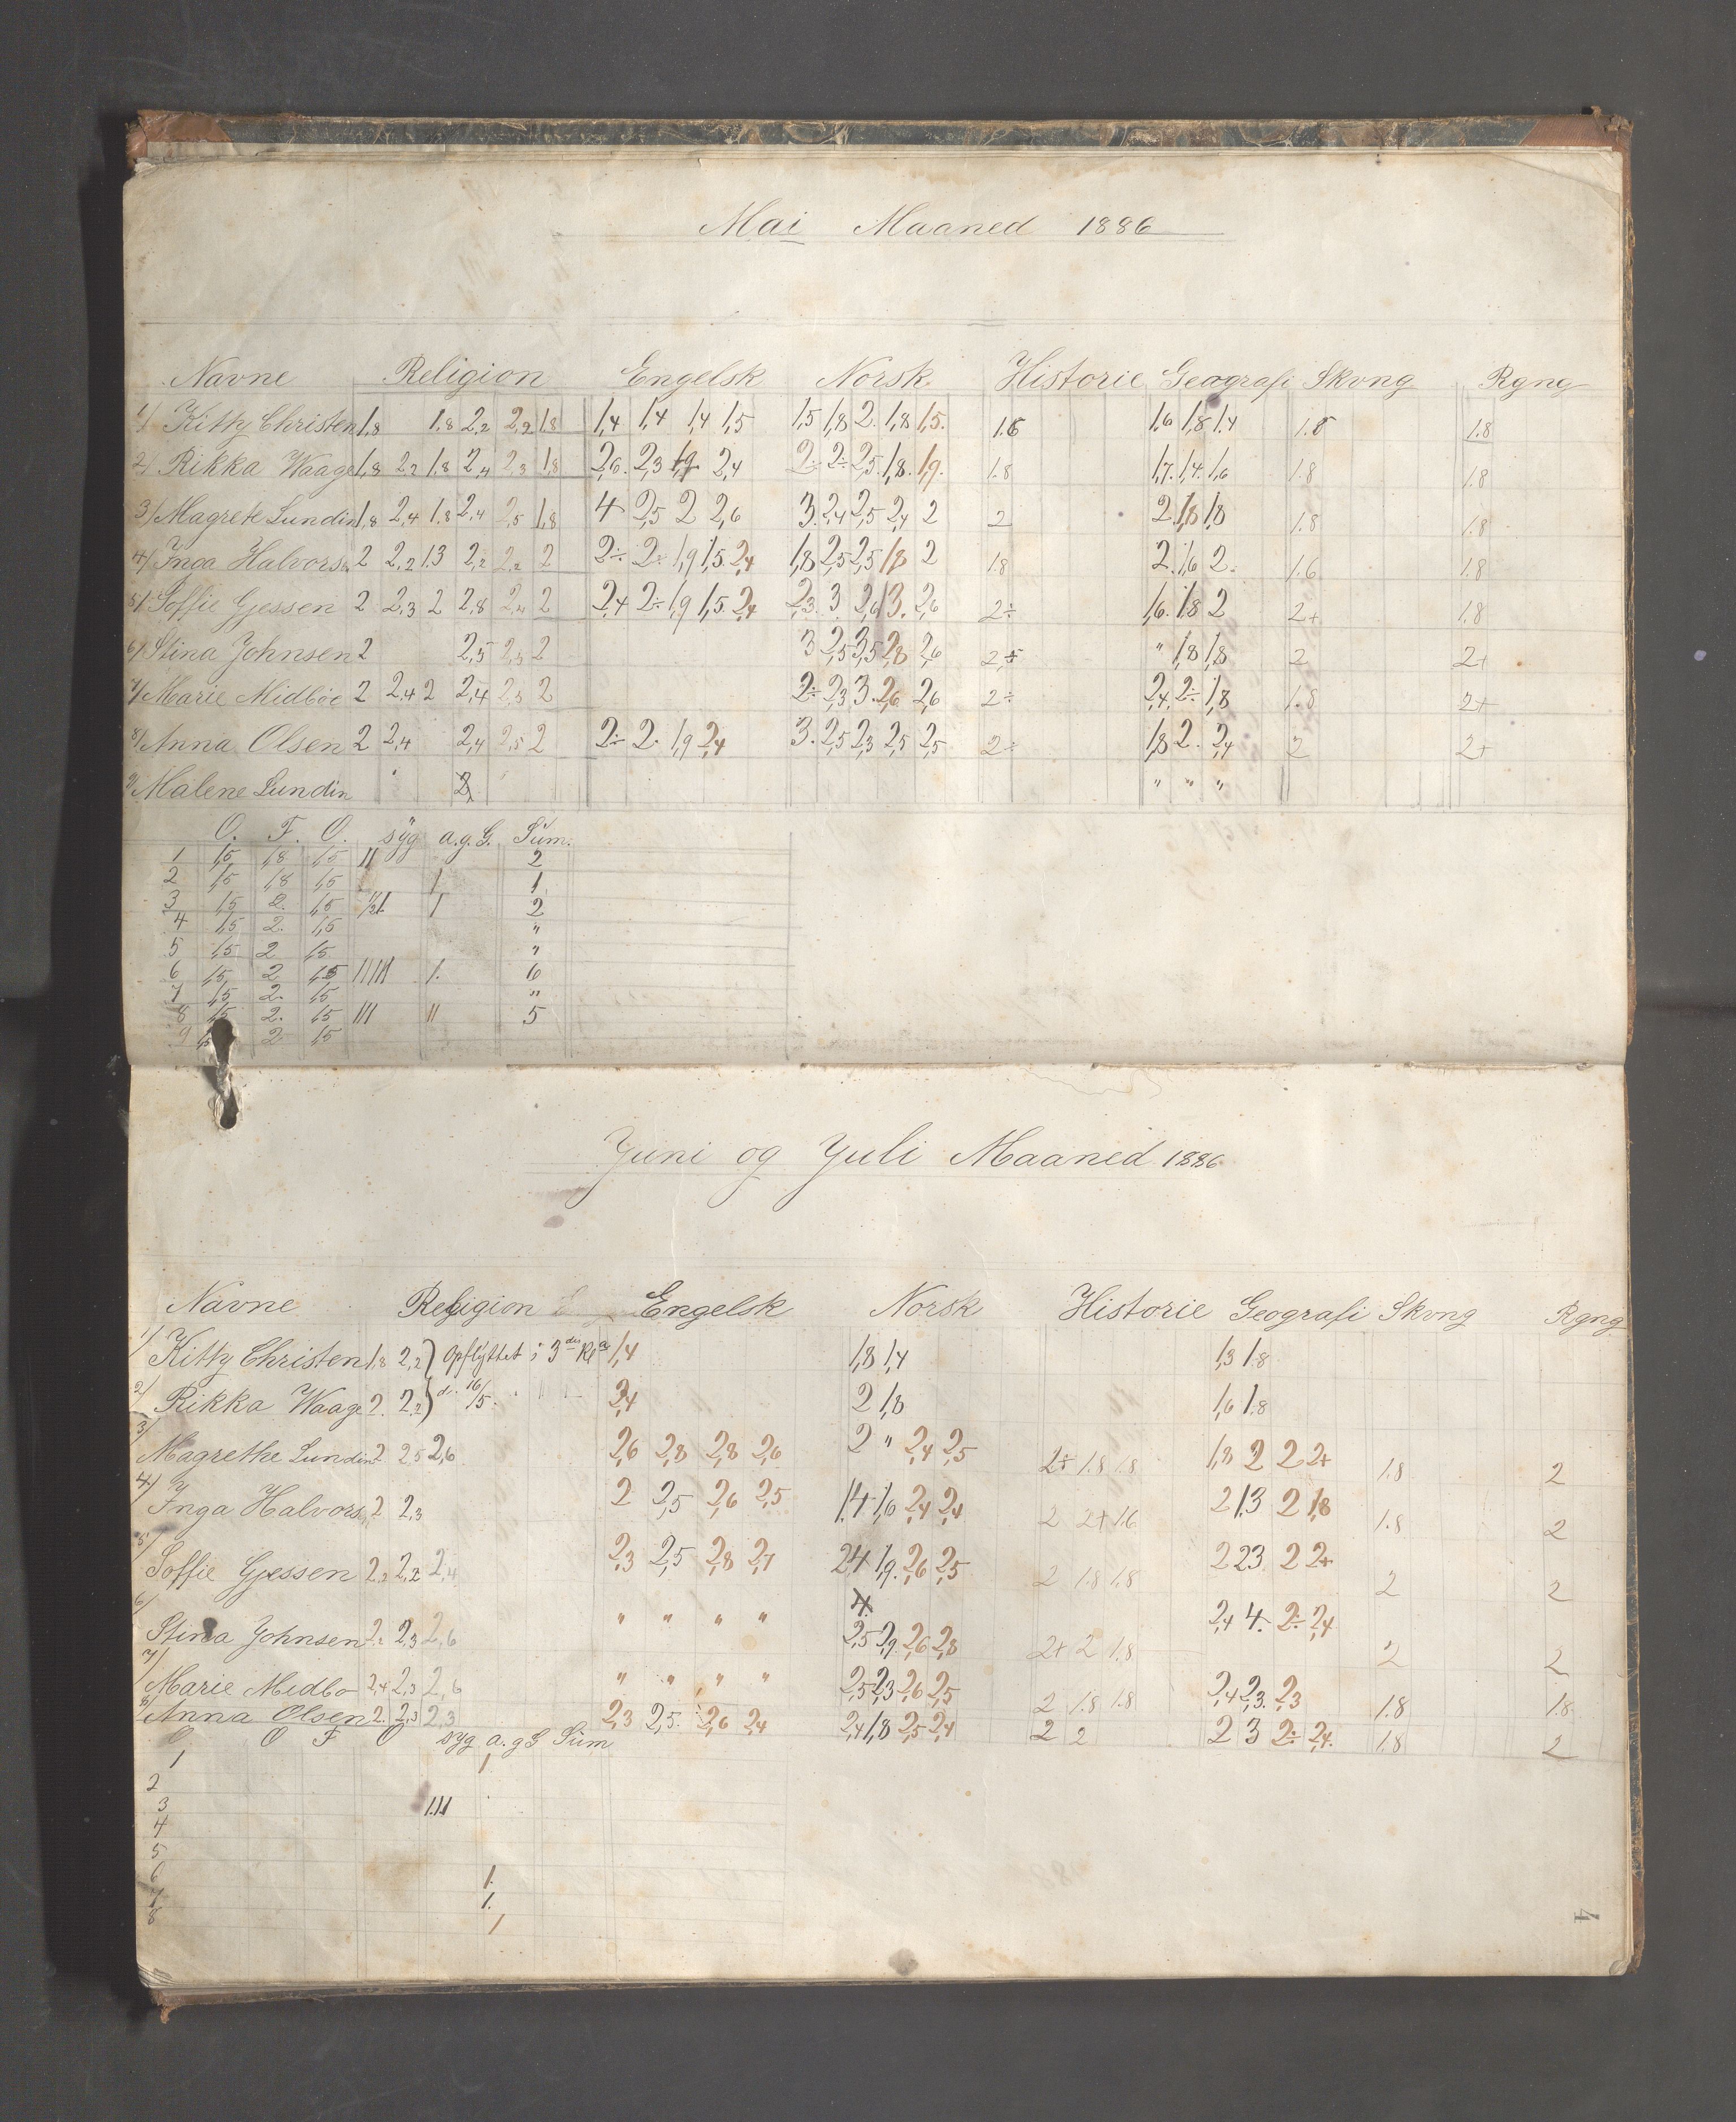 Mai Maaned 1886
Navne Religion Engelsk Norsk Historie Geografi Skvng Rgng
1/ Kitty Christen 1,8 1,8 2,2 2,2 1,8 1,4 1,4 1,4 1,5 1,5 1,8 2. 1,8 1,5. 1.6 1,6 1,8 1,4 1.8 1.8
2/ Rikka Waage 1,8 2,2 1,8 2,4 2,3 1,8 2,6. 2,3 1,9 2,4 2÷ 2÷ 2,5 1,8. 1,9. 1.8 1,7. 1,4. 1,6 1.8 1.8
3/ Magrete Lundin 1,8 2,4 1,8 2,4 2,5 1,8 4 2,5 2 2,6 3. 2,4 2,5 2,4 2 2 2. 1,8 1,8 1.8 1.8
4/ Inga Halvors 2 2,2 1,3 2,2 2,2 2 2÷ 2÷ 1,9 1,5. 2,4 1,8 2,5 2,5 1,8 2 1.8 2. 1,6 2. 1.6 1.8
5/ Soffie Gjessen 2 2,3 2 2,8 2,4 2 2,4 2÷ 1,9 1,5. 2,4 2,3. 3 2,6 3. 2,6 2÷ 1,6. 1,8 2 2+ 1.8
6/ Stina Johnsen 2 2,5 2,3 2 3 2,5 3,5 2,8 2,6 2 " 1,8 1,8 2 2+
7/ Marie Midböe 2 2,4 2 2,4 2,3 2 2÷ 2,3 3. 2,6 2,6 2÷ 2,4. 2÷ 1,8 1.8 2+
8/ Anna Olsen 2 2,4 2,4 2,5 2 2÷ 2. 1,9 2,4 3. 2,5 2,3 2,5 2,5 2÷ 1,8 2. 2,4 2 2+
9/ Malene Lundin " " "
O. F. O. syg a.g.G. Sum.
1 1,5 1,8 1,5 11 2
2 1,5 1,8 1,5 1 1
3 1,5 2. 1,5 1 2
4 1,5 2. 1,5 "
5 1,5 2 1,5 "
6 1,5 2 1,5 11111 1. 6
7 1,5 2. 1,5 "
8 1,5 2. 1,5 111 11 5
9 1,5 2 1,5
Juni og Juli Maaned 1886
Navne Religion Engelsk Norsk Historie Geografi Skvng Rgng
1/ Kitty Christen 1,8 2,2 } Opflyttet i 3die Kl 1,4 1,8 1,4 1,3 1,8
2/ Rikka Waage 2. 2,2 } d. 16/5. 2,4 2 1,8 1,6 1,8
3/ Magrethe Lundin 2 2,5 2,6 2,6 2,8 2,8 2,6 2 " 2,4 2,5 2+ 1.8 1.8 1,8 2 2 2+ 1.8 2
4/ Inga Halvors 2 2,3 2 2,5 2,6 2,5 1,4 1,6 2,4 2,4 2 2+ 1.6 2 1,3 2 1,8 1.8 2
5/ Soffie Gjessen 2,2 2,2 2,4 2,3 2,5 2,8 2,7 2,4 1,9. 2,6 2,5 2 1.8 1,8 2 2,3 2 2+ 2 2
6/ Stina Johnsen 2,2 2,3 2,6 " " " " 2,5 2,9. 2,6 2,8 2+ 2 1,8 2,4 4. 2÷ 2,4 2 2
7/ Marie Medbo 2,4 2,3 2,6 " " " " 2,5 2,3 2,6 2,5 2 1.8 1.8 2,4 2,3. 2,3 1.8 1.8
8/ Anna Olsen 2. 2,3 2,3 2,3 2,5. 2,6 2,4 2,4 1,8 2,5 2,4 2 2 2 3 2÷ 2,4. 1.8 2
O F O syg a.gG Sum
1 1
2
3 1111
4
5
6 1.
7 1.
8 1
4